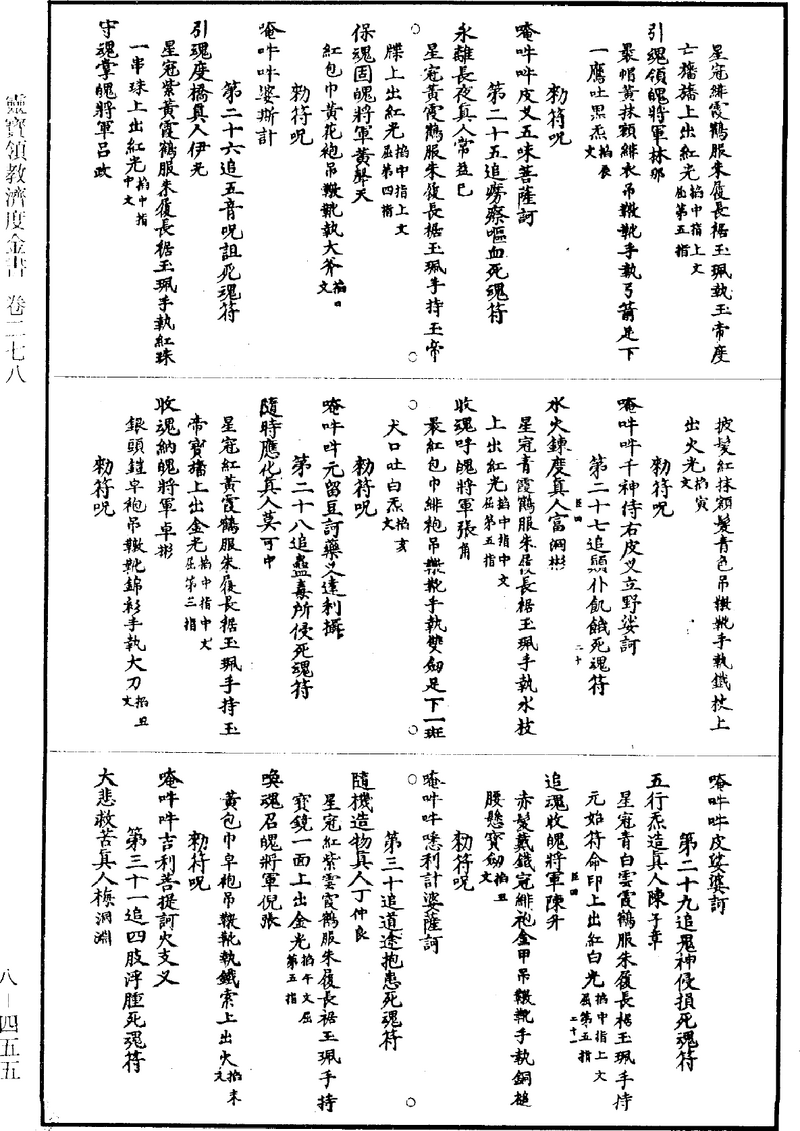 星冠緋霞鶴服朱履長裾玉珮執玉帝度
亡旛旛上出紅光掐中指上文屈第五指
引魂領魄將軍林邠
裹帽黃抹額緋衣吊鞍靴手執弓箭足下
一鷹吐黑炁掐辰文
勑符呪
唵吽吽皮叉五味菩薩訶
第二十五追癆瘵嘔血死魂符
永離長夜真人常益巳
星冠黃霞鶴服朱履長裾玉珮手持玉帝
牒上出紅光掐中指上文屈第四指
保魂固魄將軍黃聲天
紅包巾黃花袍吊鞍靴執大斧掐口文
勑符呪
唵吽吽婆斯計
第二十六追五音呪詛死魂符
引魂度橋真人伊光
星冠紫黃霞鶴服朱履長裾玉珮手執紅珠
一串珠上出紅光掐中指中文
守魂掌魄將軍呂政
披髮紅抹額髮青色吊鞍靴手執鐵杖上
出火光掐寅文
勑符呪
唵吽吽千神侍右皮叉立野娑訶
第二十七追顛仆飢餓死魂符 二十
水火鍊度真人富洞彬 臣四
星冠青霞鶴服朱履長裾玉珮手執水枝
上出紅光掐中指中文屈第五指
收魂呼魄將軍張角
裹紅包巾緋袍吊鞍靴手執雙劒足下一斑
犬口吐白炁掐亥文
勑符呪
唵吽吽元留豆訶藥叉達利攝
第二十八追蠱毒所侵死魂符
隨時應化真人莫可中
星冠紅黃霞鶴服朱履長裾玉珮手持玉
帝寶旛上出金光掐中指中文屈第三指
收魂納魄將軍卓彬
銀頭鎧皁袍吊鞍靴錦彩手執大刀掐丑文
勑符呪
唵吽吽皮娑龔訶
第二十九追鬼神侵損死魂符
五行炁造真人陳子章
星冠青白雲霞鶴服朱履長裾玉珮手持
元始符命印上出紅白光掐中指上文屈第五指 二十一
追魂收魄將軍陳升 臣四
赤髮戴鐵冠緋袍金甲吊鞍靴手執銅槌
腰懸寶劒掐丑文
勑符呪
唵吽吽㗭利計婆薩訶
第三十追道途抱患死魂符
隨機造物真人丁仲良
星冠紅紫雲霞鶴服朱履長裾玉珮手持
寶鏡一面上出金光掐午文屈第五指
喚魂召魄將軍倪張
黃包巾皁袍吊鞍靴執鐵索上出火掐未元
勑符呪
唵吽吽吉利菩提訶火支叉
第三十一追四肢浮腫死魂符
大悲救苦真人梅洞淵
靈寶領教濟度金書 卷二七八
八－四五五